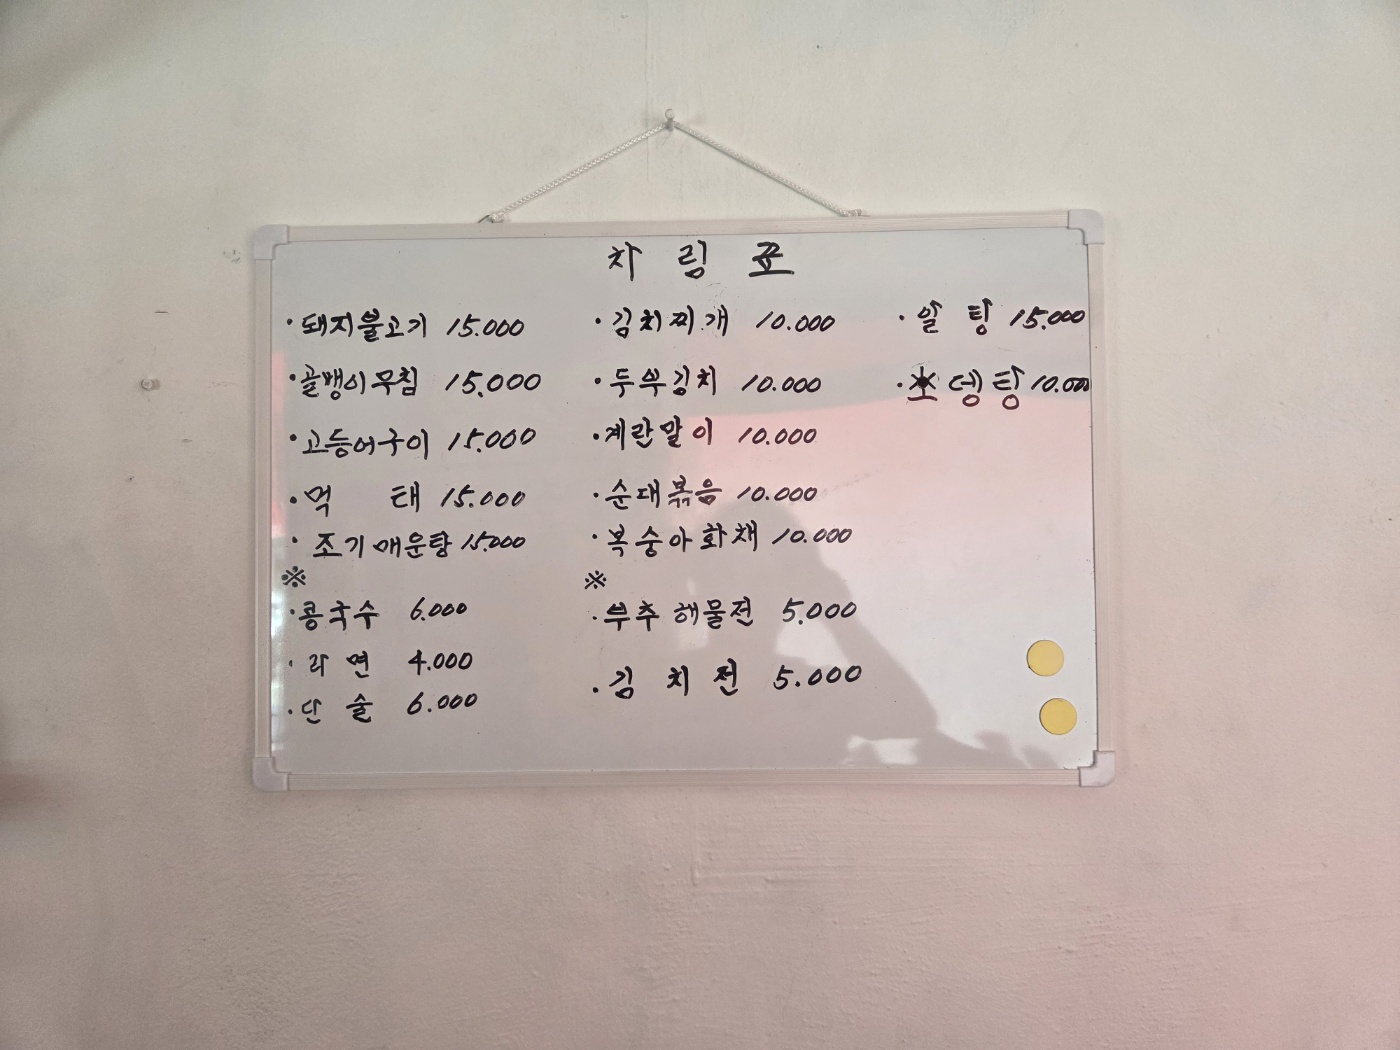 차림표
·돼지불고기 15.000
·골뱅이무침 15,000
·고등어구이 15.000
·먹태 15.000
·조기매운탕 15.000
※
·콩국수 6.000
·라면 4.000
·단술 6.000
·김치찌개 10.000
·두부김치 10.000
·계란말이 10.000
·순대볶음 10.000
·복숭아화채 10.000
※
·부추해물전 5.000
·김치전 5.000
·알탕 15.000
·오뎅탕 10.000